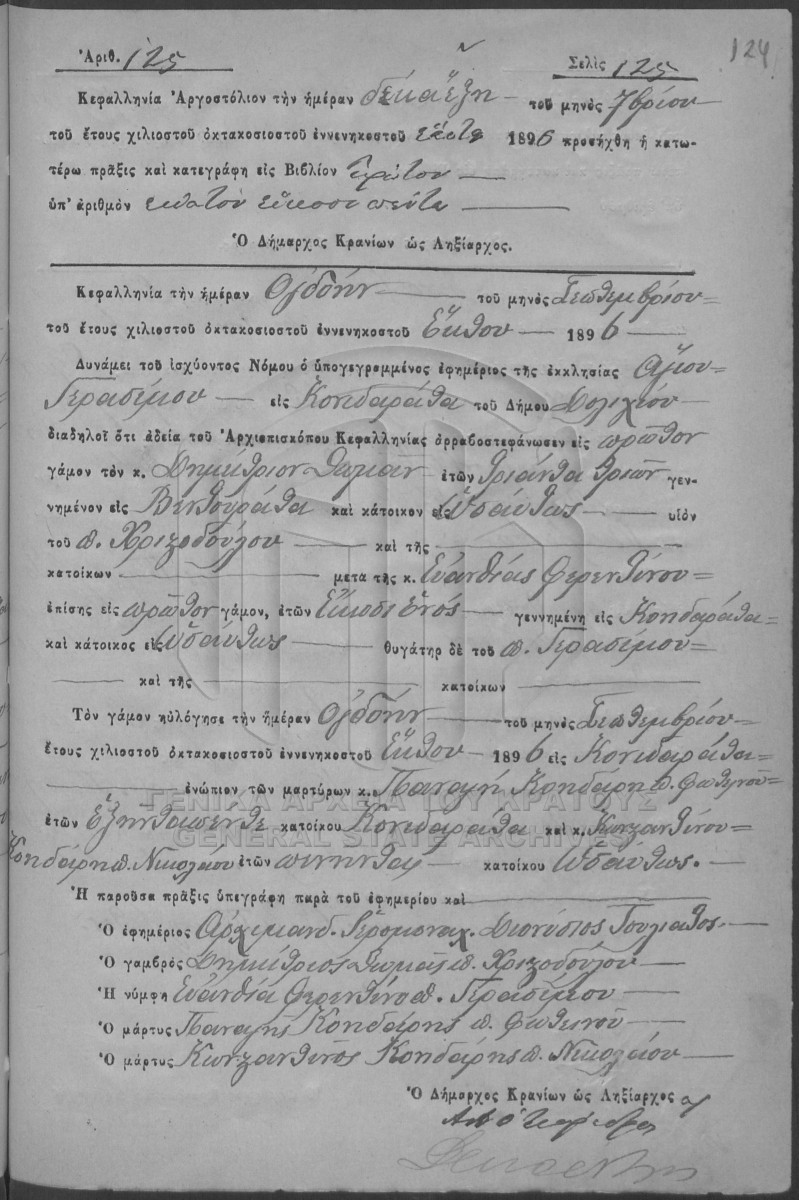 124
Ἀριθ. 125 Σελὶς 125
Κεφαλληνία Ἀργοστόλιον τὴν ἡμέραν δέκα ἕξη τοῦ μηνὸς 7βρίου
τοῦ ἔτους χιλιοστοῦ ὀκτακοσιοστοῦ ἐννενηκοστοῦ ἕκτου 1896 προσήχθη ἡ κατω-
τέρω πρᾶξις καὶ κατεγράφη εἰς Βιβλίον πρῶτον
ὑπ' ἀριθμὸν εκατὸν εἴκοσι πέντε
Ὁ Δήμαρχος Κρανίων ὡς Ληξίαρχος.
Κεφαλληνία τὴν ἡμέραν Ὀγδόην τοῦ μηνὸς Σεπτεμβρίου
τοῦ ἔτους χιλιοστοῦ ὀκτακοσιοστοῦ ἐννενηκοστοῦ Ἕκτου 1896
Δυνάμει τοῦ ἰσχύοντος Νόμου ὁ ὑπογεγραμμένος ἐφημέριος τῆς ἐκκλησίας Ἁγίου
Γερασίμου εἰς Κονιδαράτα τοῦ Δήμου Δολιχίου
διαδηλοῖ ὅτι ἀδεία τοῦ Ἀρχιεπισκόπου Κεφαλληνίας ἀρραβοστεφάνωσεν εἰς πρῶτον
γάμον τὸν κ. Δημήτριον Δαγμαν ἐτῶν τριάντα τριῶν γεν-
νημένον εἰς Βεντουράτα καὶ κάτοικον εἰς Ὡσαύτως υἱὸν
τοῦ π. Χριζοδούλου καὶ τῆς
κατοίκων μετὰ τῆς κ. Εὐανθίας Φερεντίνου
ἐπίσης εἰς πρῶτον γάμον, ἐτῶν Εἴκοσι ἑνός γεννημένη εἰς Κονιδαράτα
καὶ κάτοικος εἰς Ὡσαύτως θυγάτηρ δὲ τοῦ π. Γερασίμου
καὶ τῆς κατοίκων
Τὸν γάμον ηὐλόγησε τὴν ἡμέραν Ὀγδόην τοῦ μηνὸς Σεπτεμβρίου
ἔτους χιλιοστοῦ ὀκτακοσιοστοῦ ἐννενηκοστοῦ Ἕκτου 1896 εἰς Κονιδαράτα
ἐνώπιον τῶν μαρτύρων κ. Παναγή Κονιδάρη π. Φωτεινοῦ
ΓΕΝΙΚΑ ΑΡΧΕΙΑ ΤΟΥ ΚΡΑΤΟΥΣ
ἐτῶν Ἑξήντα πέντε κατοίκου Κονιδαράτα καὶ κ. Κωνσταντίνου
GENERAL STATE ARCHIVES
Κονιδάρη π. Νικολάου ἐτῶν πενήντα κατοίκου Ὡσαύτως.
Ἡ παροῦσα πρᾶξις ὑπεγράφη παρὰ τοῦ ἐφημερίου καὶ
Ὁ ἐφημέριος Ἀρχιμανδ. Ἱερομοναχ. Διονύσιος Γουλιάτος.
Ὁ γαμβρὸς Δημήτριος π. Χριζοδούλου
Ἡ νύμφη Εὐανθία Φερεντίνου π. Γερασίμου
Ὁ μάρτυς Παναγής Κονιδάρης π. Φωτεινοῦ
Ὁ μάρτυς Κωνσταντῖνος Κονιδάρης π. Νικολάου
Ὁ Δήμαρχος Κρανίων ὡς Ληξίαρχος